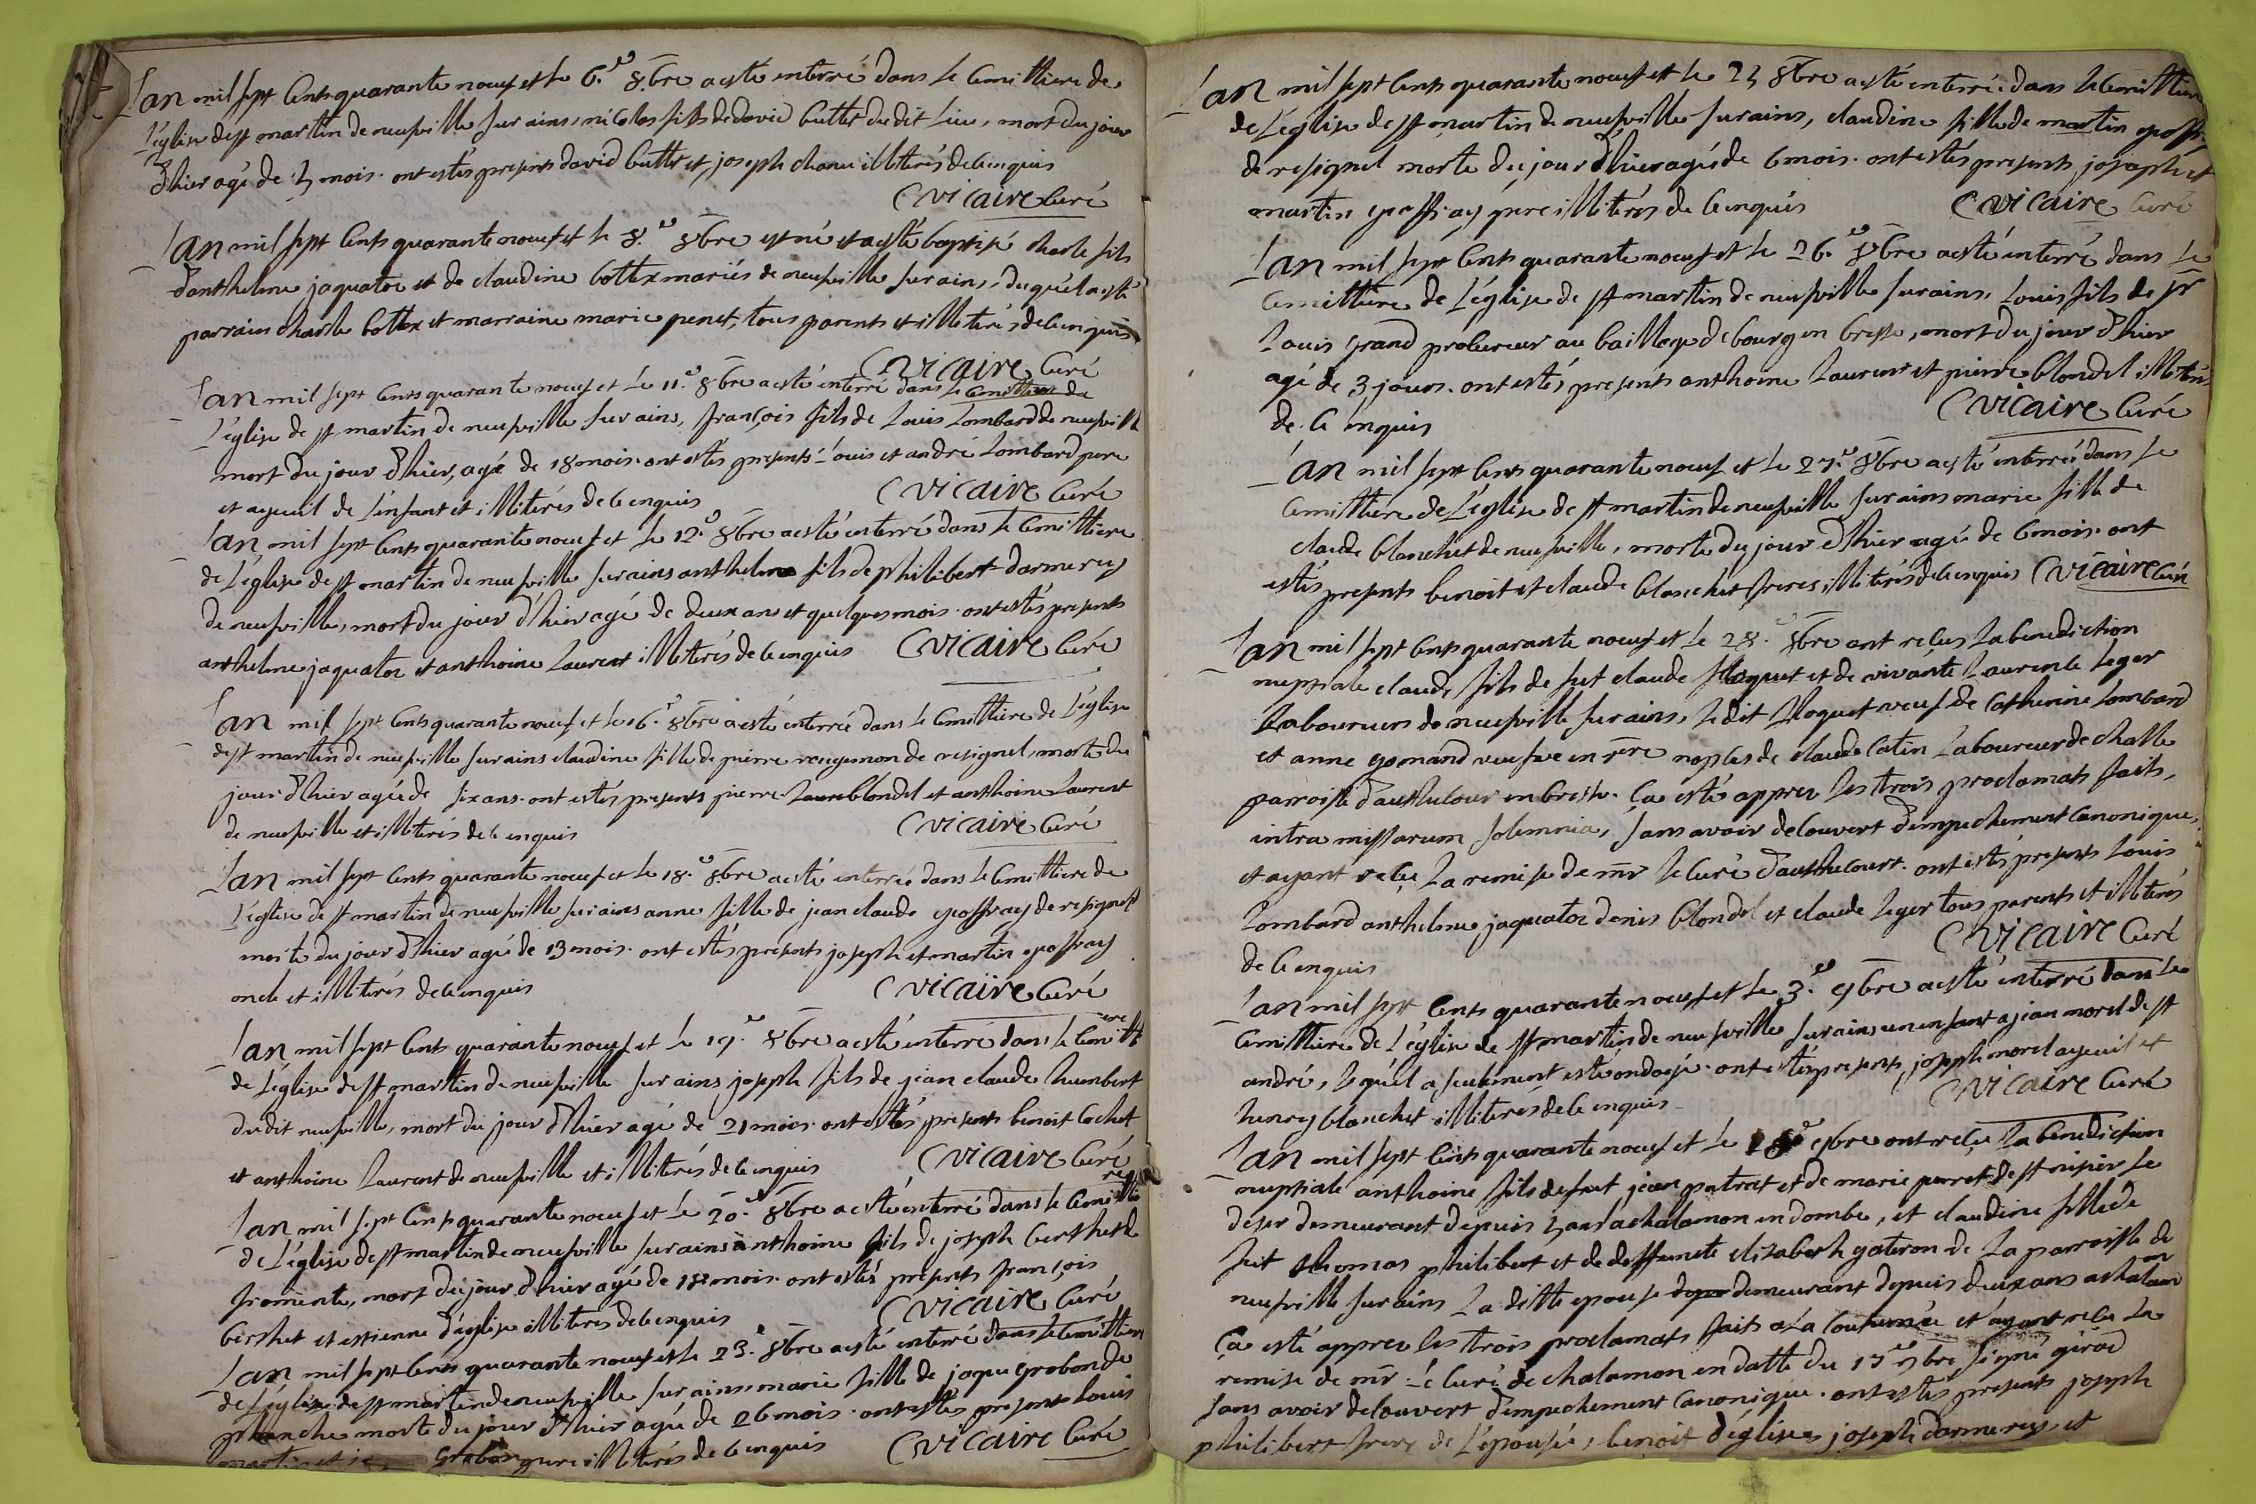 L'an mil sept cents quarante neuf et le 6.e 8bre a esté interré dans le cemittiere de
l'église de st martin de neufville sur ains, nicolas fils de david buttet du dit lieu, mort du jour
d'hier agé de mois. ont estés presents david buttet et joseph chanu illiterés de ce enquis
C vicaire curé
L'an mil sept cents quarante neuf et le 8.e 8bre est né et a esté baptisé charle fils
d'anthelme jaquatoz et de claudine bottex mariés de neufville sur ains, duquel a esté
parrain charle bottex et marraine marie penet, tous parents et illiterés de ce enquis
C vicaire curé
L'an mil sept cents quarante neuf et le 11.e 8bre a esté interré dans le cemittiere de
l'église de st martin de neufville sur ains, françois fils de louis lombard de neufville
mort du jour d'hier, agé de 18 mois. ont estés presents louis et andré lombard pere
et ayeuil de l'enfant et illiterés de ce enquis C vicaire curé
L'an mil sept cents quarante neuf et le 12.e 8bre a esté interré dans le cemittiere
de l'église de st martin de neufville sur ains anthelme fils de philibert darmerey
de neufville, mort du jour d'hier agé de deux ans et quelques mois. ont estés presents
anthelme jaquatoz et anthoine laurent illiterés de ce enquis C vicaire curé
L'an mil sept cents quarante neuf et le 16.e 8bre a esté interrée dans le cemittiere de l'église
de st martin de neufville sur ains claudine fille de pierre rengemon de resignel, morte du
jour d'hier agée de six ans. ont estés presents pierre blondel et anthoine laurent
de neufville et illiterés de ce enquis C vicaire curé
L'an mil sept cents quarante neuf et le 18.e 8bre a esté interrée dans le cemittiere de
l'église de st martin de neufville sur ains anne fille de jean claude geoffray de resignel
morte du jour d'hier agé de 13 mois. ont estés presents joseph et martin geoffray
oncle et illiterés de ce enquis C vicaire curé
L'an mil sept cents quarante neuf et le 19.e 8bre a esté interré dans le cemittiere
de l'église de st martin de neufville sur ains joseph fils de jean claude humbert
du dit neufville, mort du jour d'hier agé de 21 mois. ont estés presents benoit cochet
et anthoine laurent de neufville et illiterés de ce enquis C vicaire curé
L'an mil sept cents quarante neuf et le 20.e 8bre a esté interré dans le cemittiere
de l'église de st martin de neufville sur ains anthoine fils de joseph berthet de
fromente, mort du jour d'hier agé de 18 mois. ont estés presents françois
berthet et estienne d'église illiterés de ce enquis C vicaire curé
L'an mil sept cents quarante neuf et le 23.e 8bre a esté interré dans le cemittiere
de l'église de st martin de neufville sur ains marie fille de jaque grobon de
planche morte du jour d'hier agée de 26 mois. ont estés presents louis
martin et grobon pere illiterés de ce enquis C vicaire curé
L'an mil sept cents quarante neuf et le 8bre a esté interré dans le cemittiere
de l'église de st martin de neufville sur ains, claudine fille de martin geoffray
de resignel morte du jour d'hier agée de 6 mois. ont estés presents joseph et
martin geoffray pere illiterés de ce enquis C vicaire curé
L'an mil sept cents quarante neuf et le 26.e 8bre a esté interré dans le
cemittiere de l'église de st martin de neufville sur ains. louis fils de sr
louis grand procureur au bailliage de bourg en bresse, mort du jour d'hier
agé de 3 jours. ont estés presents anthoine laurent et pierre blondel illiterés
de ce enquis C vicaire curé
L'an mil sept cents quarante neuf et le 27.e 8bre a esté interrée dans le
cemittiere de l'église de st martin de neufville sur ains marie fille de
claude blanchet de neufville, morte du jour d'hier agé de 6 mois. ont
estés presents benoit et claude blanchet freres illiterés de ce enquis C vicaire curé
L'an mil sept cents quarante neuf et le 28.e 8bre ont reçus la benediction
nuptiale claude fils de fut claude floquet et de vivante laurence leger
laboureurs de neufville sur ains, le dit floquet veuf de catherine lombard
et anne gomand veufve en 1ere nopces de claude catin laboureur de challe
parroisse d'authecour en bresse. ça esté apprex les trois proclamats faits,
intra missarum solemnia, sans avoir decouvert d'empechement canonique,
et ayant reçu la remise de mr le curé d'authecourt. ont estés presents louis
lombard anthelme jaquatoz denis blondel et claude leger tous parents et illiterés
de ce enquis C vicaire curé
L'an mil sept cents quarante neuf et le 3.e 9bre a esté interré dans le
cemittiere de l'église de st martin de neufville sur ains un enfant a jean morel de st
andré, lequel a seulement esté ondoyé. ont estés presents joseph morel ayeuil et
henry blanchet illiterés de ce enquis C vicaire curé
L'an mil sept cents quarante neuf et le 9bre ont reçu la benediction
nuptiale anthoine fils de fut jean putrat et de marie perret de st nisier le
deser demeurant depuis ans a chalamon en dombe, et claudine fille de
fut thomas philibert et de deffuncte elisabeth gateron de la parroisse de
neufville sur ains la ditte epouse demeurant depuis deux ans a chalamon
ça esté apprex les trois proclamats faits a la coutumée et ayant reçu la
remise de mr le curé de chalamon en datte du 17.e 9bre signé girod
sans avoir decouvert d'empechement canonique. ont estés presents joseph
philibert frere de l'epouse, benoit d'église, joseph darmerey, et